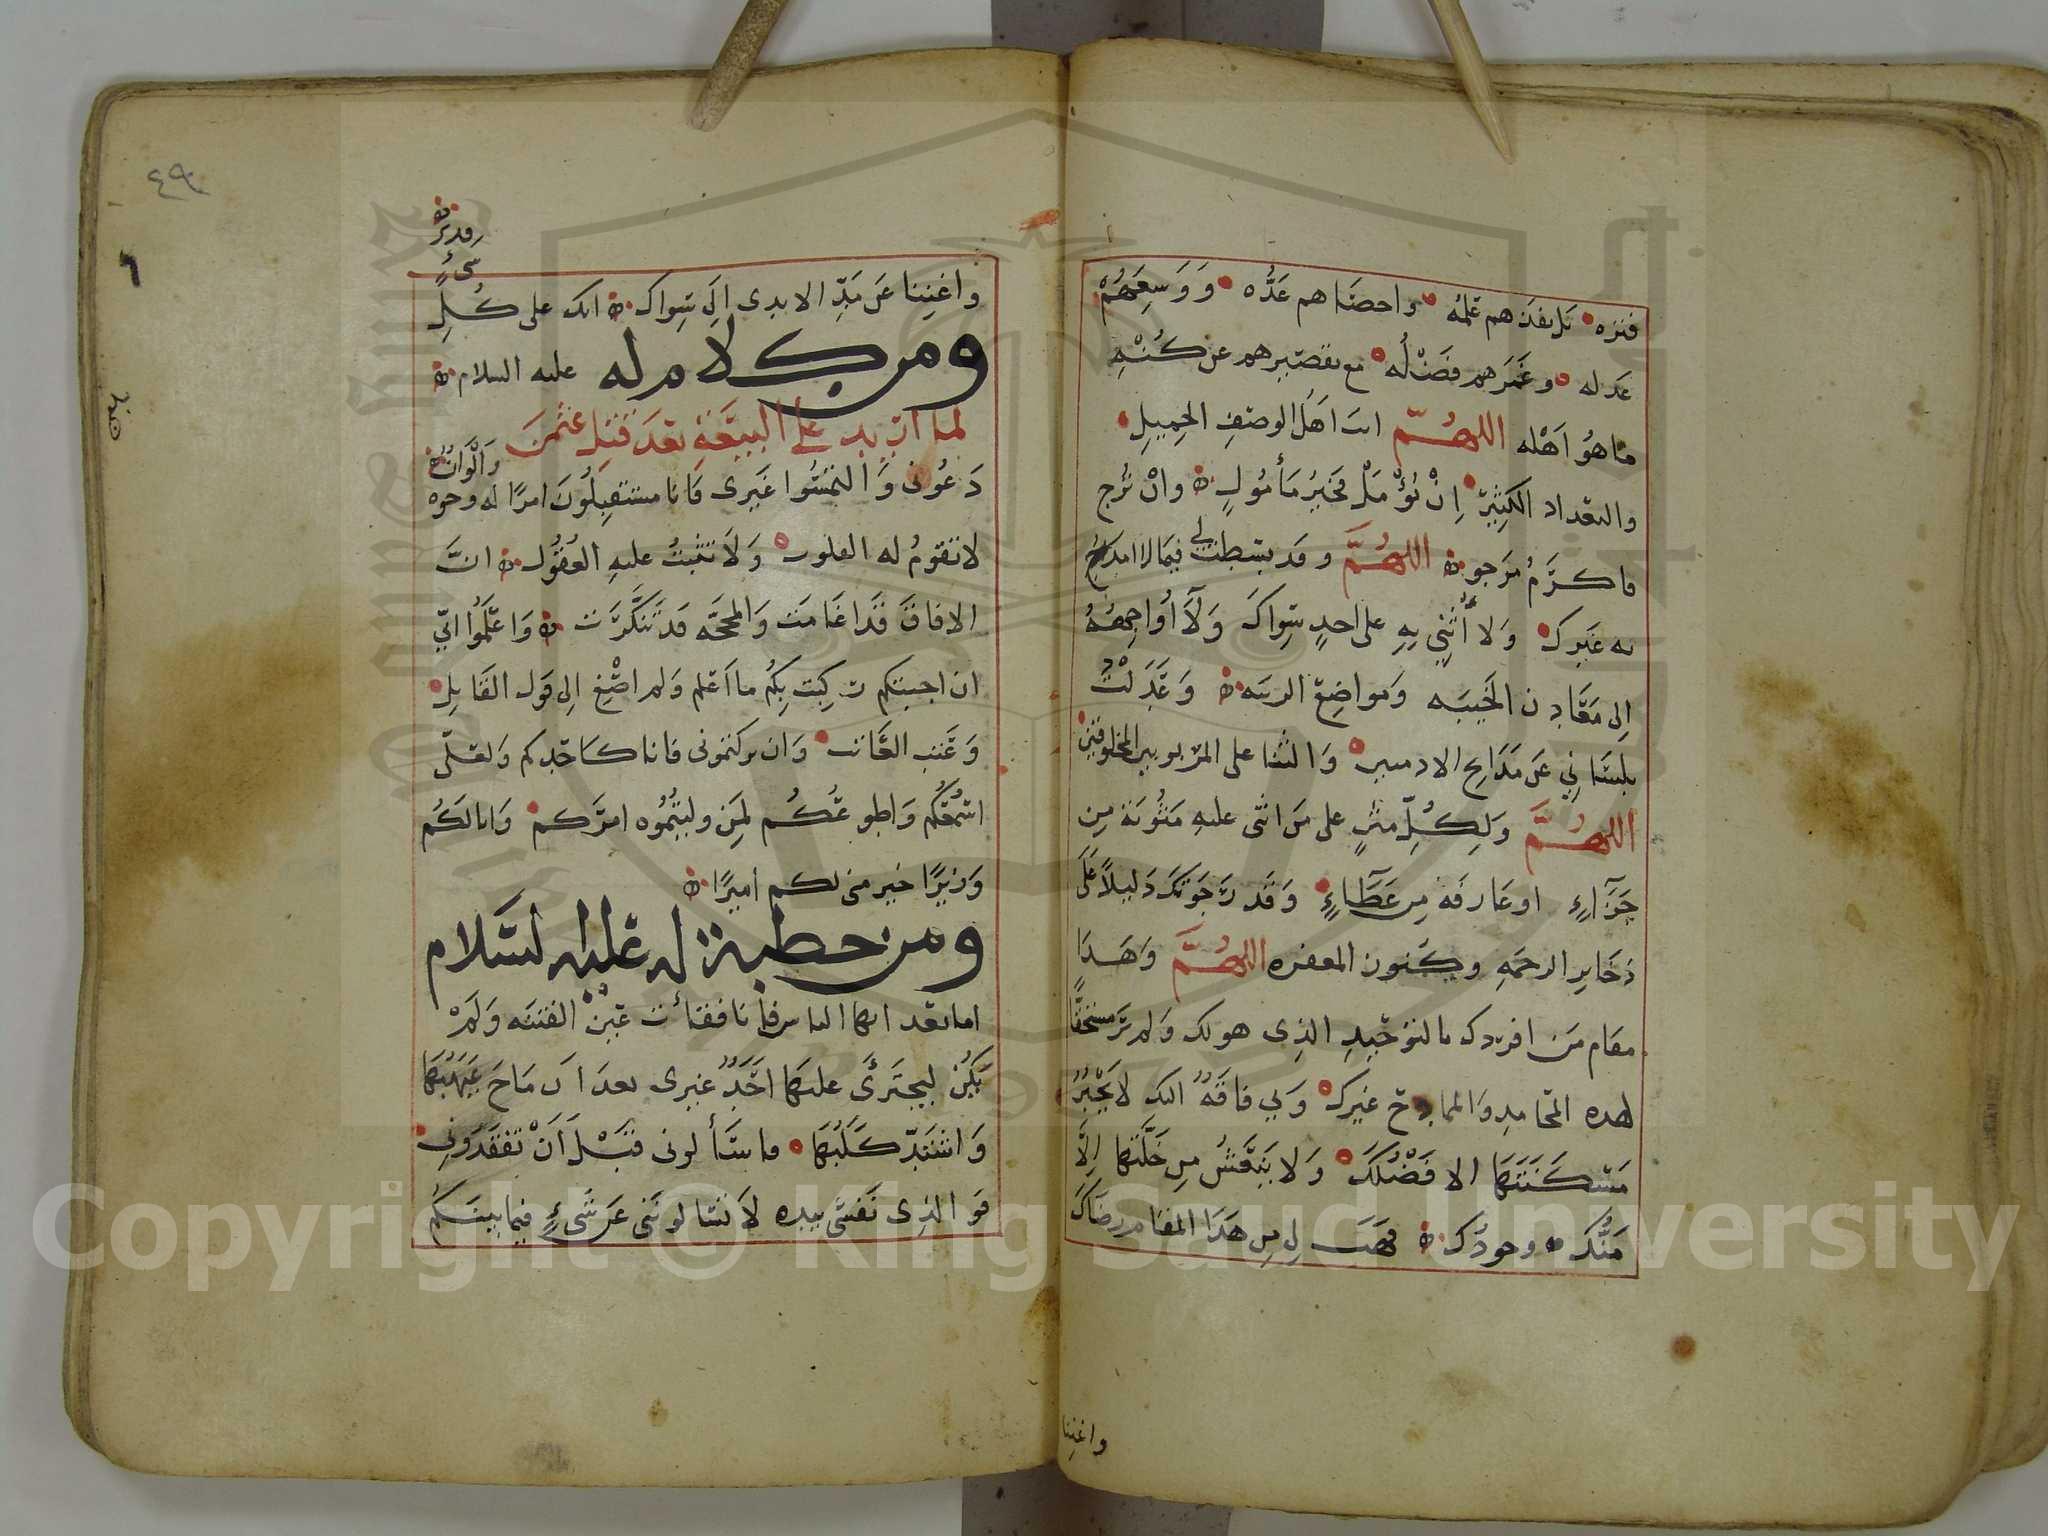 فنزه بل نفذهم علمه واحصاهم عده ووسعهم
عدله وغمرهم فضله مع تقصيرهم عن كنه
ما هو اهله اللهم انت اهل الوصف الجميل
والتعداد الكثير ان تؤمل فخير مأمول وان ترج
فاكرم مرجو اللهم وقد بسطت لي فيما لا امدح
به غيرك ولا أثني به على احد سواك ولا اواجهه
الى معادن الخيبه ومواضع الريبه وعدلت
بلساني عن مدايح الادميين والثنا على المربوبين المخلوقين
اللهم ولكل مثن على من اثنى عليه مثوبة من
جزاء او عارفة من عطاء وقد رجوتك دليلا على
ذخاير الرحمه وكنوز المغفره اللهم وهذا
مقام من افردك بالتوحيد الذى هو لك ولم ير مستحقا
لهذه المحامد والممادح غيرك وبي فاقة اليك لا يجبر
مسكنتها الا فضلك ولا ينعش من خلتها إلا
منك وجودك فهب لي من هذا المقام رضاك
واغننا
٤٩
قدير
شيء
واغننا عن مد الايدى الى سواك انك على كل
ومن كلام له عليه السلام
لما اريد على البيعة بعد قتل عثمن
والوان
دعونى والتمسوا غيرى فانا مستقبلون امرا له وجوه
لا تقوم له القلوب ولا تثبت عليه العقول وان
الافاق قد اغامت والمحجه قد تنكرت واعلموا اني
ان اجبتكم ركبت بكم ما اعلم ولم اصغ الى قول القايل
وعتب العاتب وان تركتمونى فانا كاحدكم ولعلى
اسمعكم واطوعكم لمن وليتموه امركم وانا لكم
وزيرا خير منى لكم اميرا
ومن خطبة له عليه السلام
اما بعد ايها الناس فانا فقأت عين الفتنه ولم
يكن ليجترئ عليها احد غيرى بعد ان ماج غيهبها
واشتد كلبها فاسألونى قبل ان تفقدونى
فو الذى نفسى بيده لا تسالوننى عن شيء فيما بينكم
Copyright © King Saud University